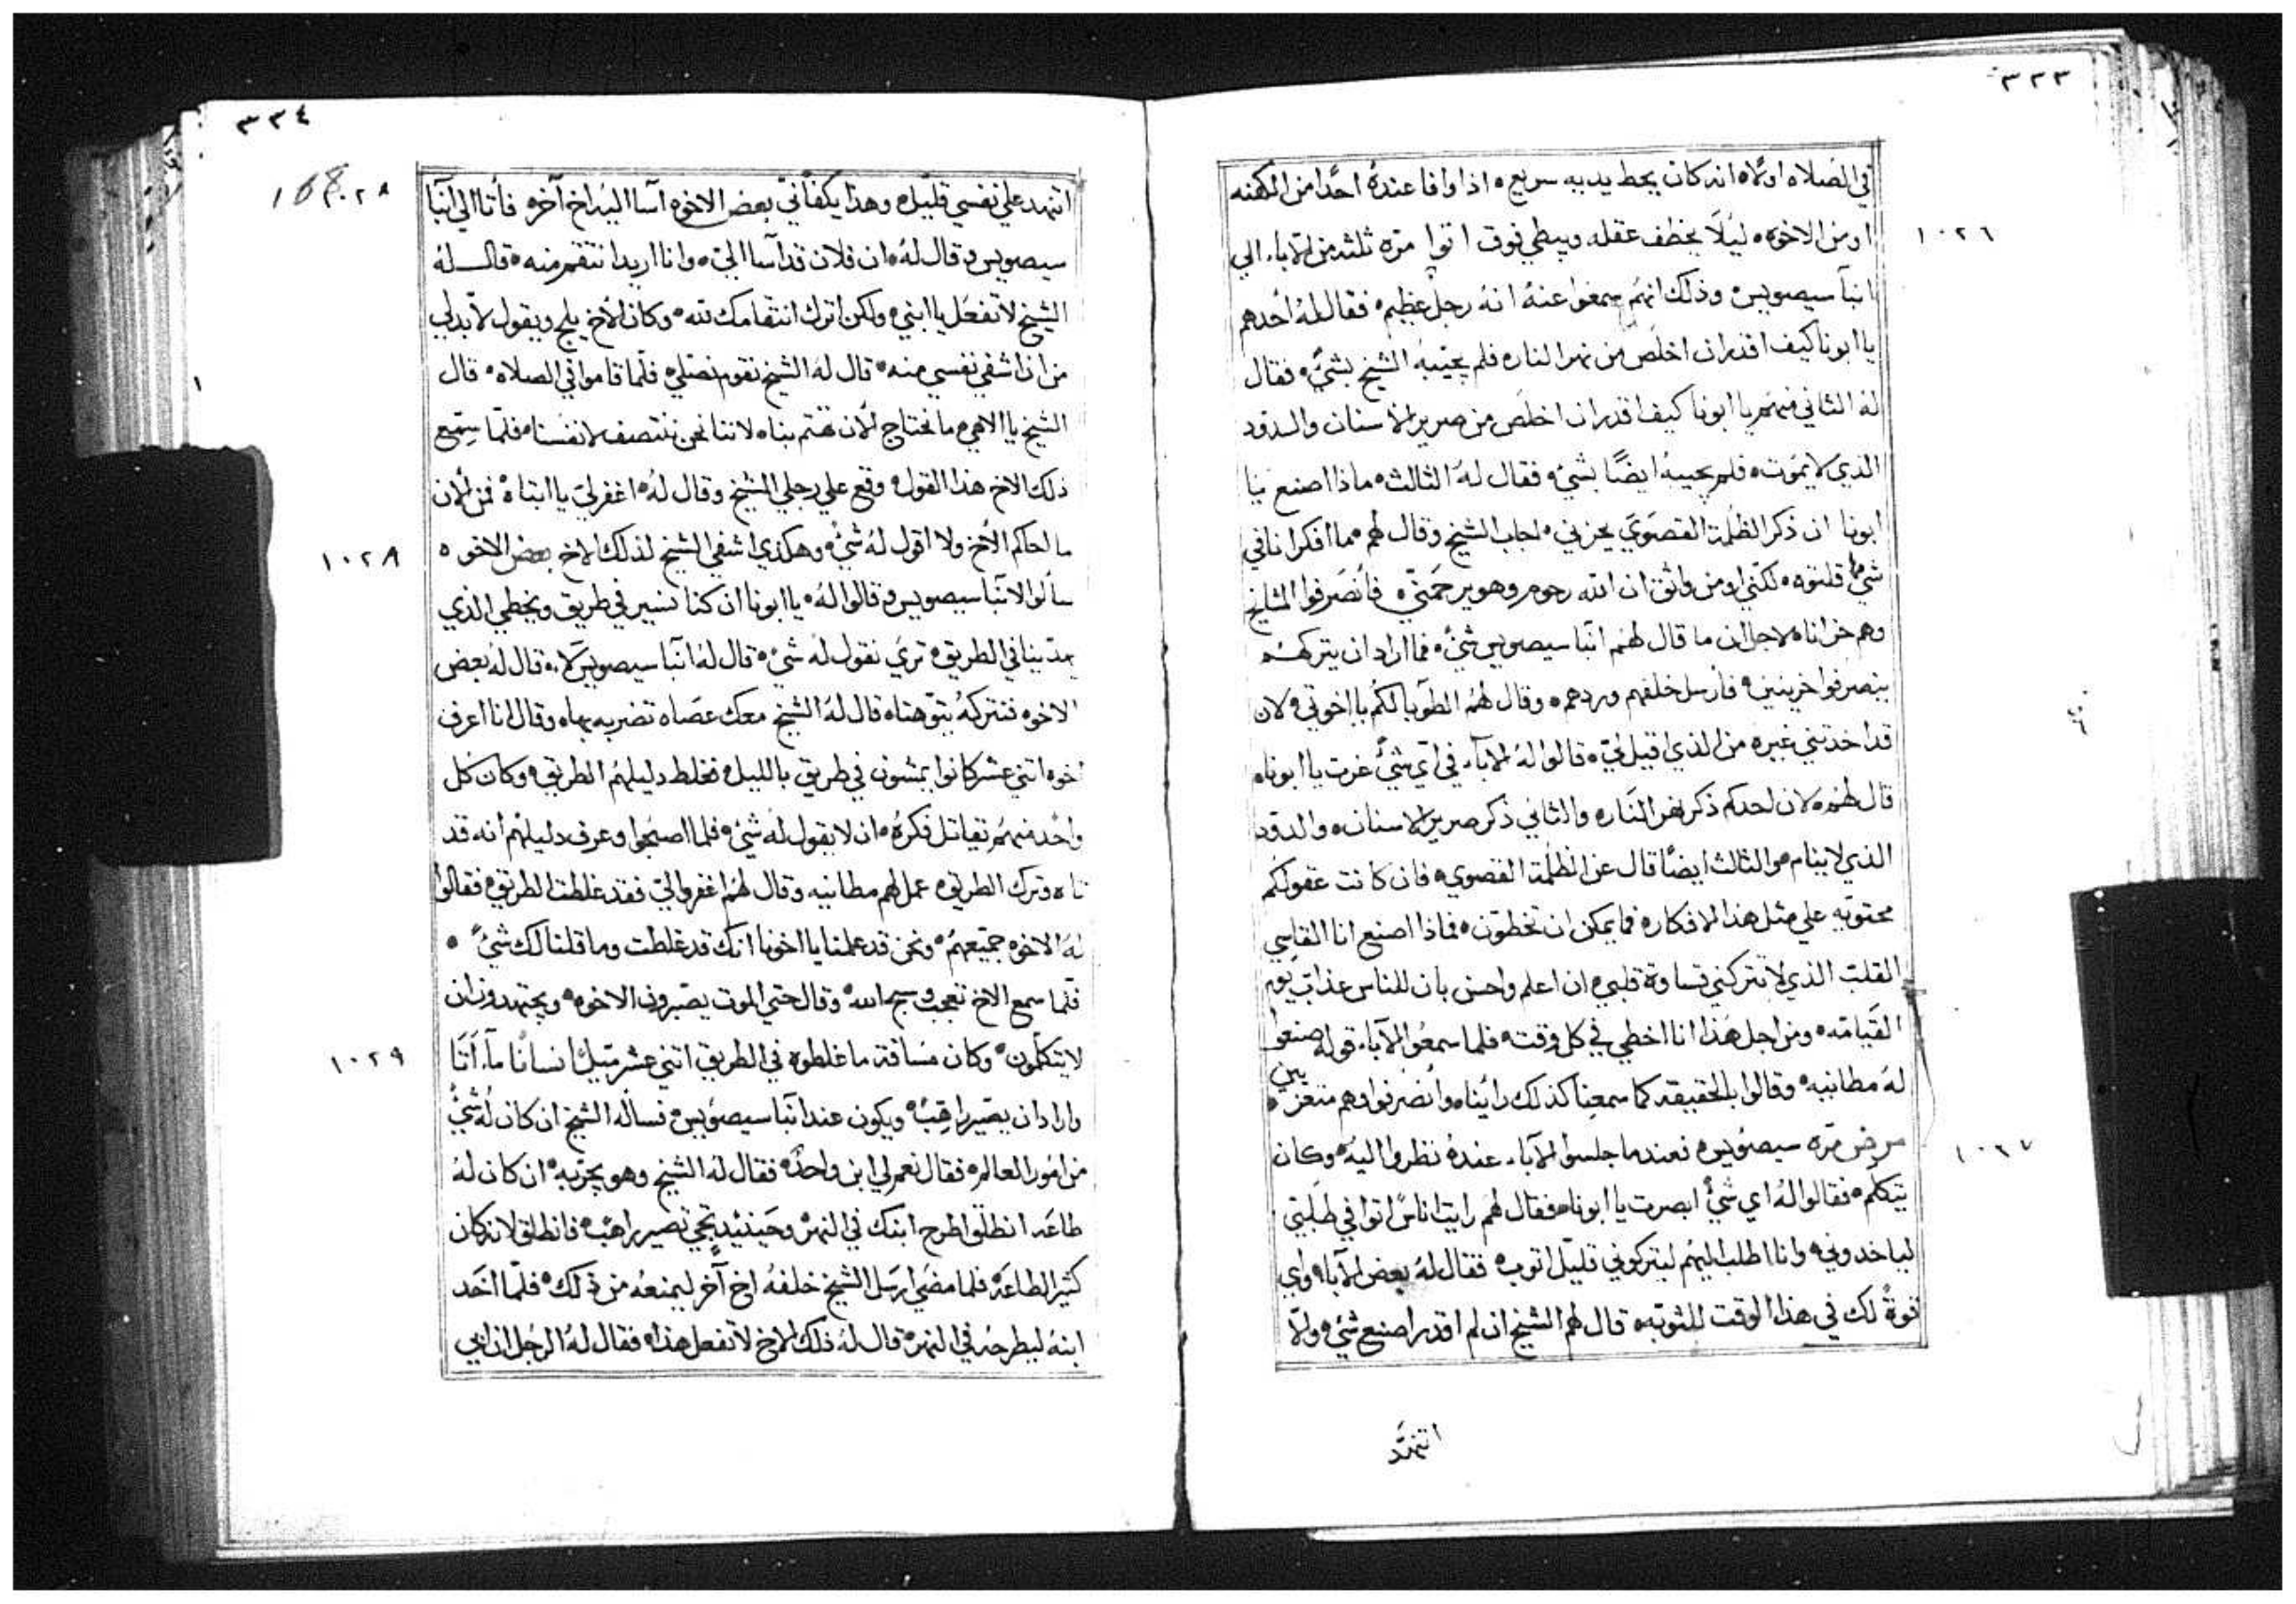 ٣٣٣
في الصلاه اولا انه كان يحط يديه سريع ه اذا وافا عنده احدا من الكهنه
١٠٢٦
او من الاخوه ليلا يخطف عقله ويبطي فوق اتوا مره ثلثه من الاباء الي
انبا سيصويس وذلك انهم سمعوا عنه انه رجل عظيم فقال له احدهم
يا ابونا كيف اقدر ان اخلص من نهر النار ه فلم يجيبه الشيخ بشيء فقال
له الثاني منهم يا ابونا كيف اقدر ان اخلص من صرير الاسنان والدود
الذي لا يموت ه فلم يجيبه ايضا بشيء فقال له الثالث ه ماذا اصنع يا
ابونا ان ذكر الظلمة القصوي يحزني ه اجاب الشيخ وقال لهم مما افكر انا في
شي قلتوه لكني اومن واثق ان الله رحوم وهو يرحمني فانصرفوا المشايخ
وهم حزانا ه لاجل ان ما قال لهم انبا سيصويس شيء ه فما اراد ان يتركهم
ينصرفوا حزينين ه فارسل خلفهم وردهم ه وقال لهم الطوبا لكم يا اخوتي لان
قد اخذتني غيره من الذي اقيل لي ه قالوا له الاباء في اي شيء غرت يا ابونا ه
قال لهم ه لان احدكم ذكر نهر النار ه والثاني ذكر صرير الاسنان ه والدود
الذي لا ينام ه والثالث ايضا قال عن الظلمة القصوي ه فان كانت عقولكم
محتويه علي مثل هذا الافكار ه فما يمكن ان تخطون ه فماذا اصنع انا القاسي
القلب الذي لا تتركني قساوة قلبي ه ان اعلم واحس بان للناس عذاب يوم
القيامه ه ومن اجل هذا انا اخطي في كل وقت ه فلما سمعوا الاباء قوله صنعوا
له مطانيه ه وقالوا بالحقيقه كما سمعنا كذلك راينا ه وانصرفوا وهم متعزيين
١٠٢٧
مرض مره سيصويس ه فعندما جلسوا الاباء عنده نظروا اليه ه وكان
يتكلم ه فقالوا له اي شيء ابصرت يا ابونا ه فقال لهم رايت اناس اتوا في طلبتي
لياخدوني ه وانا اطلب اليهم ليتركوني قليل اتوب ه فقال له بعض الاباء واي
قوة لك في هذا الوقت للتوبه ه قال لهم الشيخ ان لم اقدر اصنع شيء ه ولا
اتنهد
٣٣٤
١٠٢٨
اتنهد علي نفسي قليل ه وهذا يكفاني بعض الاخوه آسا اليه اخ آخر ه فاتا الي انبا
سيصويس ه وقال له ه ان فلان قد آسا الي ه وانا اريد انتقم منه ه قال له
الشيخ لا تفعل يا ابني ه ولكن اترك انتقامك لله ه وكان الاخ يلج ويقول لا بد لي
من ان اشفي نفسي منه ه قال له الشيخ نقوم نصلي ه فلما قاموا في الصلاه ه قال
الشيخ يا الاهي ه ما نحتاج الان تهتم بنا ه لاننا نحن ننتصف لانفسنا ه فلما سمع
ذلك الاخ هذا القول ه وقع علي رجلي الشيخ وقال له ه اغفر لي يا ابتاه فمن الان
١٠٢٨
ما احاكم الاخ ولا اقول له شيء ه وهكذي اشفي الشيخ لذلك الاخ بعض الاخوه
سالوا لانبا سيصويس ه قالوا له ه يا ابونا ان كنا نسير في طريق ويخطي الذي
يهدينا في الطريق ه تري نقول له شيء ه قال له انبا سيصويس لا ه قال له بعض
الاخوه فنتركه يتوهنا ه قال له الشيخ معك عصاه تضربه بها ه وقال انا اعرف
اخوه اتني عشر كانوا يمشون في طريق بالليل ه فغلط دليلهم الطريق ه وكان كل
واحد منهم تقاتل فكره ه ان لا يقول له شيء ه فلما اصبحوا وعرف دليلهم انه قد
تاه وترك الطريق ه عمل لهم مطانيه وقال لهم اغفروا لي فقد غلطت الطريق ه فقالوا
له الاخوه جميعهم ه ونحن قد علمنا يا اخونا انك قد غلطت وما قلنا لك شيء ه
فلما سمع الاخ تعجب وسبح الله ه وقال حتي الموت يصبرون الاخوه ه ويجتهدون ان
١٠٢٩
لا يتكلمون ه وكان مسافة ما غلطوه في الطريق اتني عشر ميل انسانا ما اتا
واراد ان يصير راهب ه ويكون عند انبا سيصويس ه فساله الشيخ ان كان له شيء
من امور العالم ه فقال نعم لي ابن واحد ه فقال له الشيخ وهو يجربه ه ان كان له
طاعه انطلق اطرح ابنك في النهر ه وحينئد تجي تصير راهب ه فانطلق لانه كان
كثير الطاعه ه فلما مضي ارسل الشيخ خلفه اخ آخر ليمنعه من ذلك ه فلما اخد
ابنه ليطرحه في النهر ه قال له ذلك الاخ لا تفعل هذا ه فقال له الرجل ان ابي